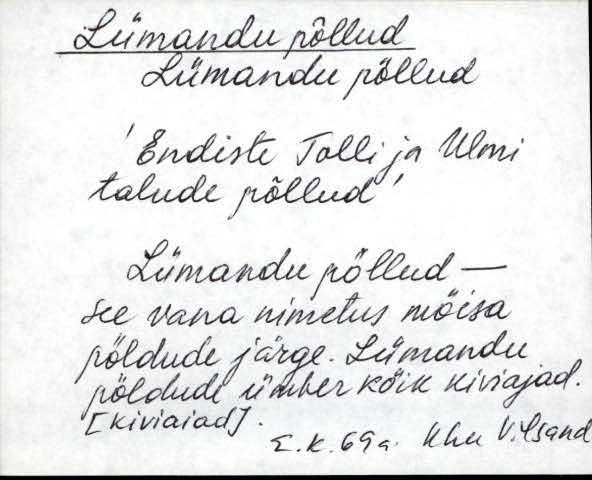 Lümandu põllud
Lümandu põllud
'Endiste Tolli ja Ulmi
talude põllud'
Lümandu põllud —
see vana nimetus mõisa
põldude järge. Lümandu
põldude ümber kõik kiviajad.
[kiviaiad].
E.K. 69 a. Uhu Vilsand